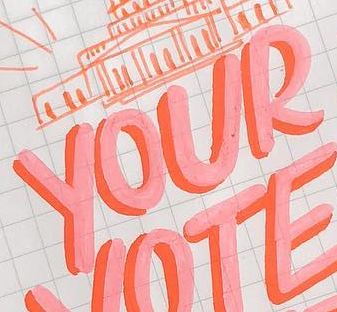 YOUR
VOTE